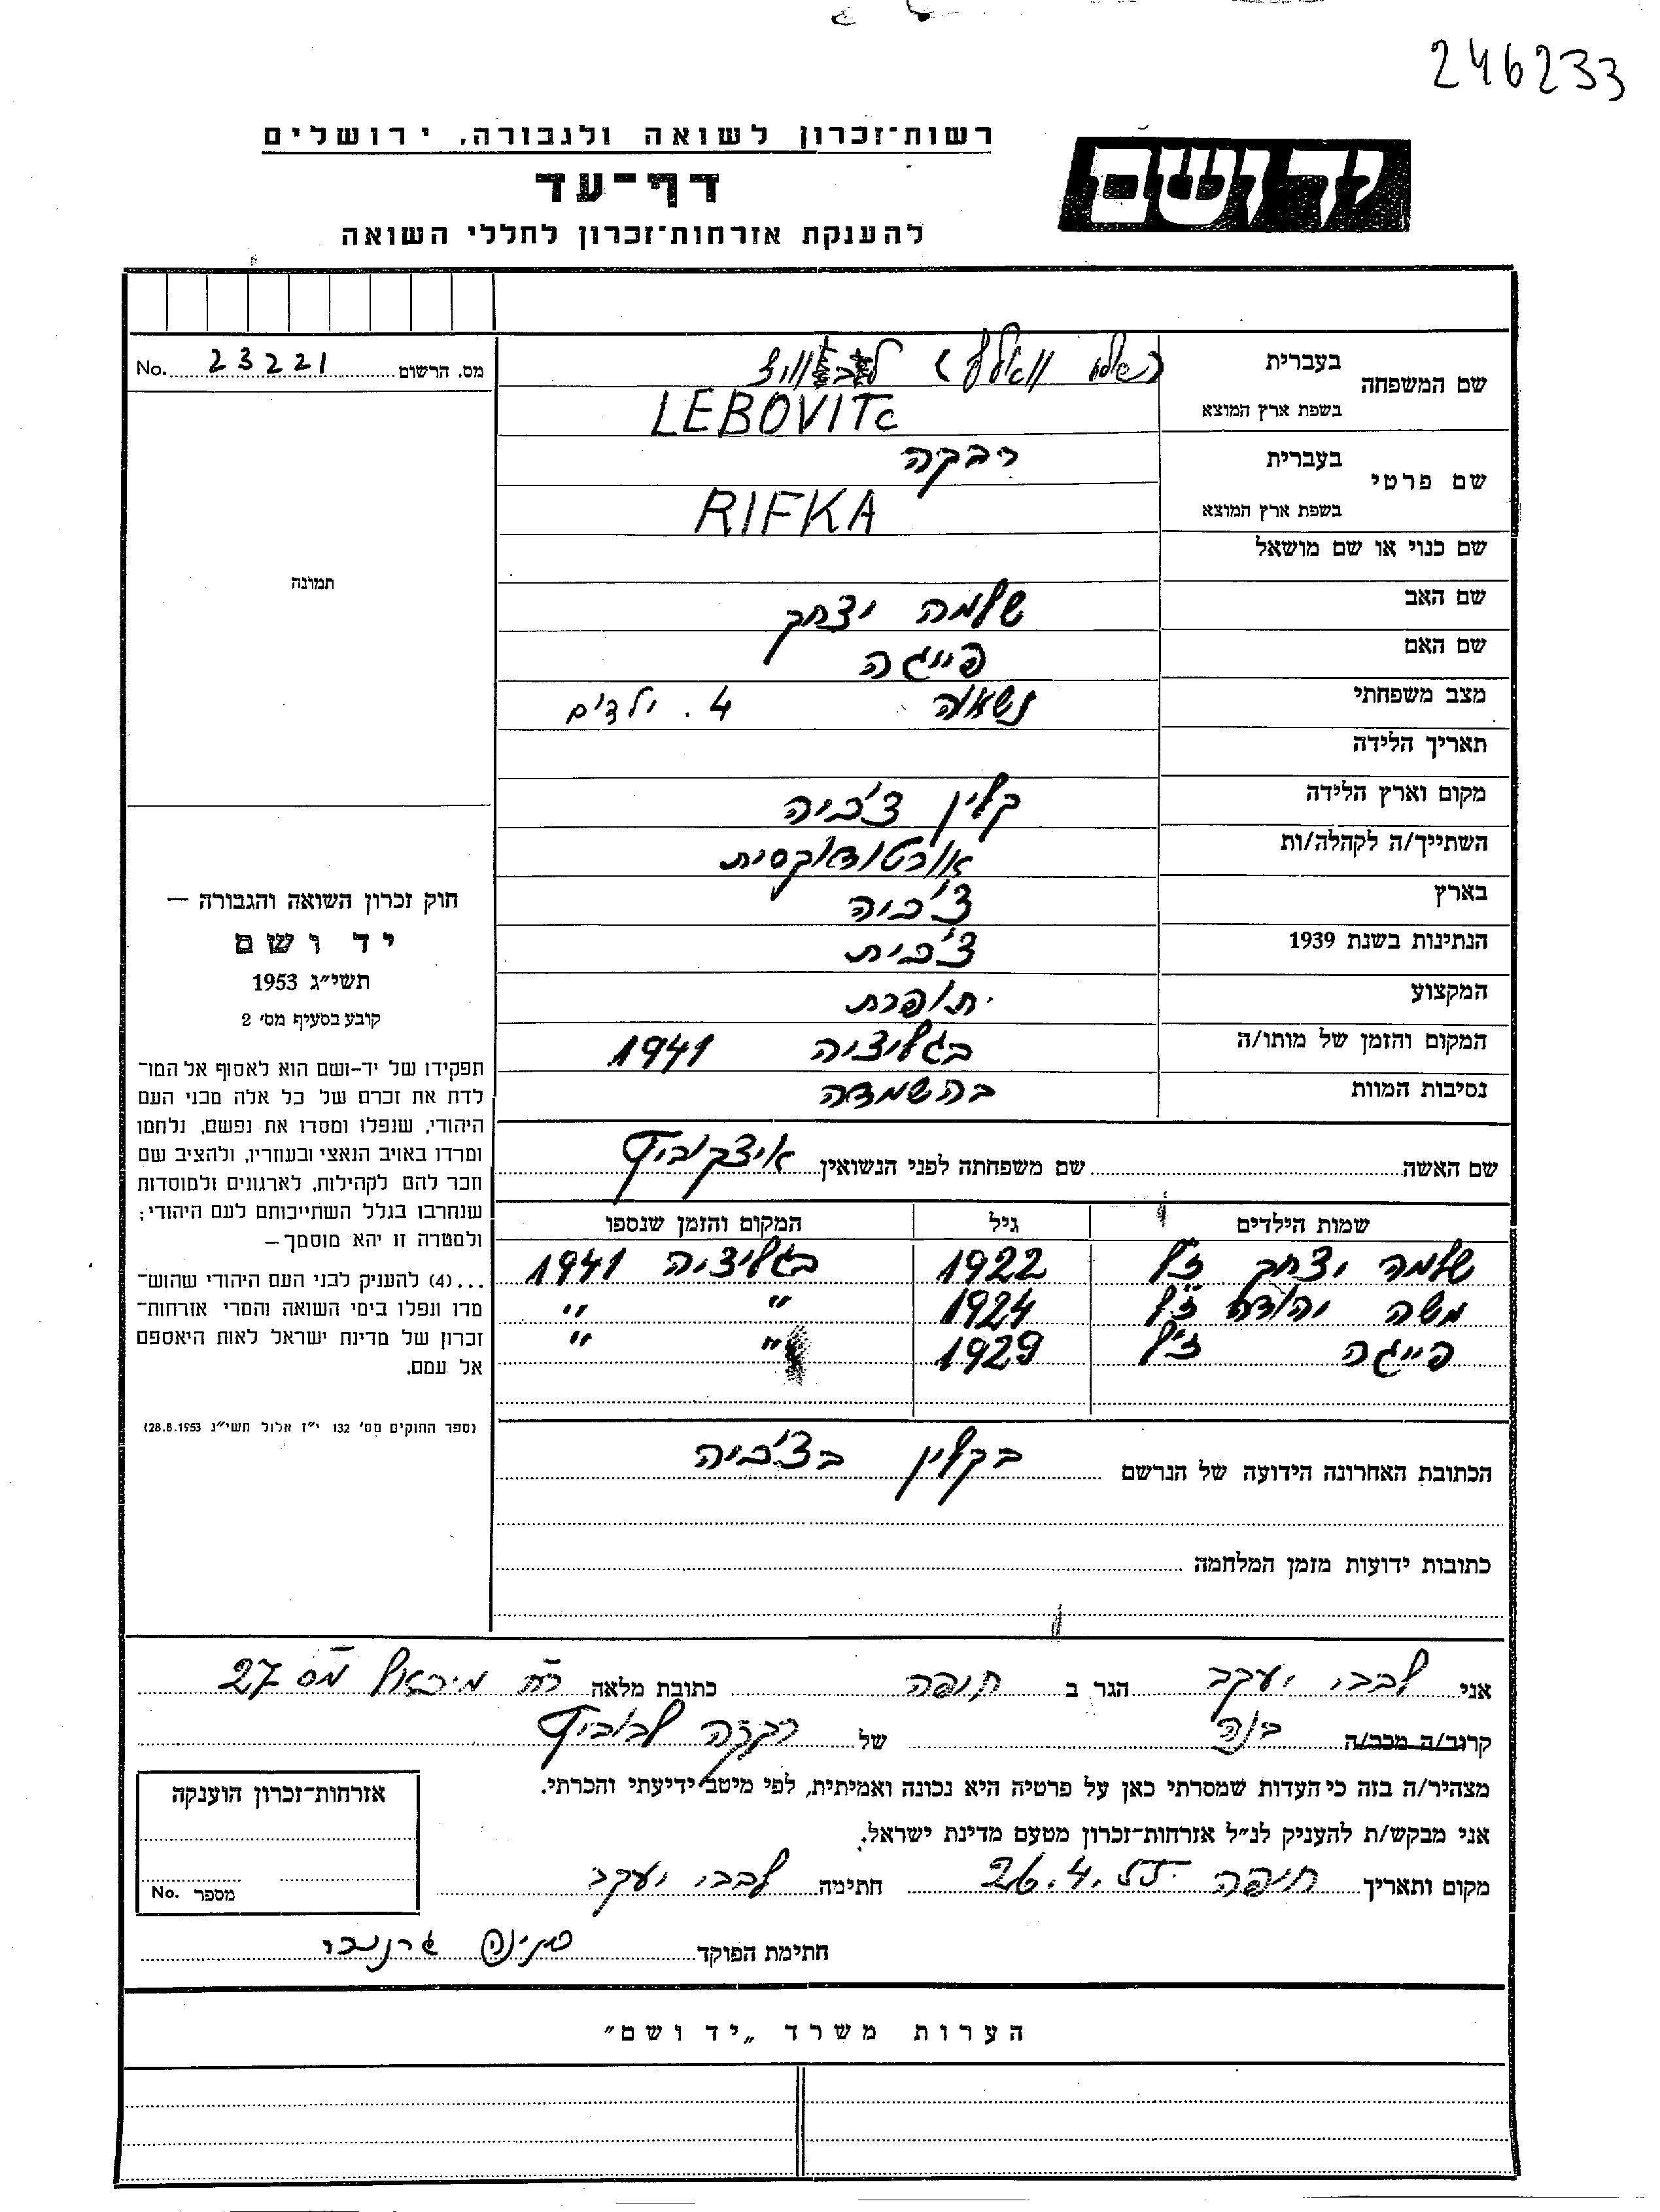 246233
יד ושם
רשות־זכרון לשואה ולגבורה, ירושלים
דף־עד
להענקת אזרחות־זכרון לחללי השואה
שם המשפחה
בעברית
בשפת ארץ המוצא LEBOVITc
שם פרטי
בעברית רבקה
בשפת ארץ המוצא RIFKA
שם כנוי או שם מושאל
שם האב שלמה יצחק
שם האם פייגה
מצב משפחתי נשואה 4 ילדים
תאריך הלידה
מקום וארץ הלידה קלין צ'כיה
השתייך/ה לקהלה/ות אורטודוקסית
בארץ צ'כיה
הנתינות בשנת 1939 צ'כית
המקצוע תופרת
המקום והזמן של מותו/ה בגליציה 1941
נסיבות המוות בהשמדה
שם האשה שם משפחתה לפני הנשואין איצקוביץ
שמות הילדים גיל המקום והזמן שנספו
שלמה יצחק ז"ל 1922 בגליציה 1941
משה יהודה ז"ל 1924 " "
פייגה ז"ל 1929 " "
הכתובת האחרונה הידועה של הנרשם בקלין בצ'כיה
כתובות ידועות מזמן המלחמה
מס. הרשום 23221 No.
תמונה
חוק זכרון השואה והגבורה —
יד ושם
תשי״ג 1953
קובע בסעיף מס׳ 2
תפקידו של יד-ושם הוא לאסוף אל המו־
לדת את זכרם של כל אלה מבני העם
היהודי, שנפלו ומסרו את נפשם, נלחמו
ומרדו באויב הנאצי ובעוזריו, ולהציב שם
וזכר להם לקהילות, לארגונים ולמוסדות
שנחרבו בגלל השתייכותם לעם היהודי;
ולמטרה זו יהא מוסמך —
...(4) להעניק לבני העם היהודי שהוש־
מדו ונפלו בימי השואה והמרי אזרחות־
זכרון של מדינת ישראל לאות היאספם
אל עמם.
(ספר החוקים מס׳ 132 י״ז אלול תשי״ג 28.8.1953)
אני לבבי יעקב הגר ב חיפה כתובת מלאה רח מיכאל מס 27
קרוב/ה מכב/ה בנה של רבקה לבוביץ
מצהיר/ה בזה כי העדות שמסרתי כאן על פרטיה היא נכונה ואמיתית, לפי מיטב ידיעתי והכרתי.
אני מבקש/ת להעניק לנ״ל אזרחות־זכרון מטעם מדינת ישראל.
מקום ותאריך חיפה 26.4.55 חתימה לבבי יעקב
חתימת הפוקד
אזרחות־זכרון הוענקה
מספר No.
הערות משרד „יד ושם״